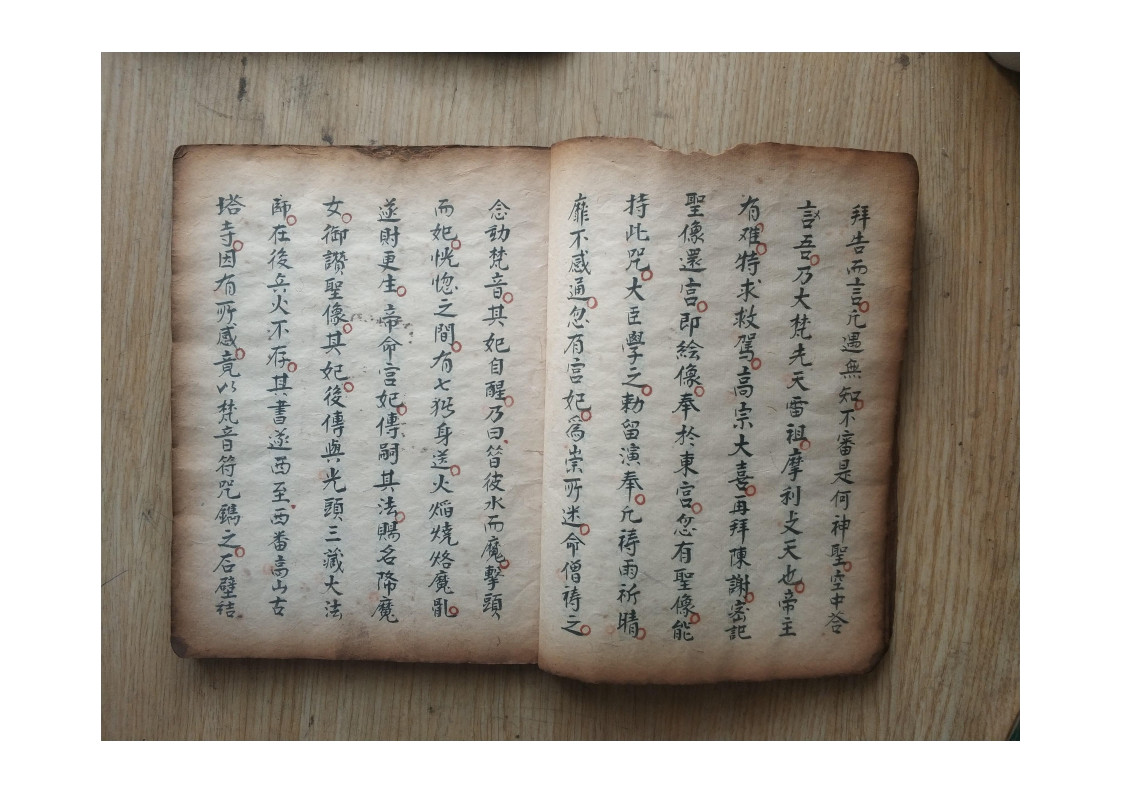 拜告而言凢遇無知不審是何神聖空中答
言吾乃大梵先天雷祖摩利攴天也帝主
有难特求救駕高宗大喜再拜陳謝宻記
聖像還宫即絵像奉於東宫忽有聖像能
持此咒大臣學之勅留演奉凢祷雨祈晴
靡不感通忽有宫妃為祟所迷命僧祷之
念動梵音其妃自醒乃曰昝彼水而魔擊頭
而妃恍惚之間有七猪身送火熖燒烙魔亂
遂財更生帝命宫妃傳嗣其法賜名降魔
女御讃聖像其妃後傳與光頭三藏大法
師在後兵火不存其書遂西至西番高山古
塔寺因有所感竟以梵音符咒鐫之石壁秸